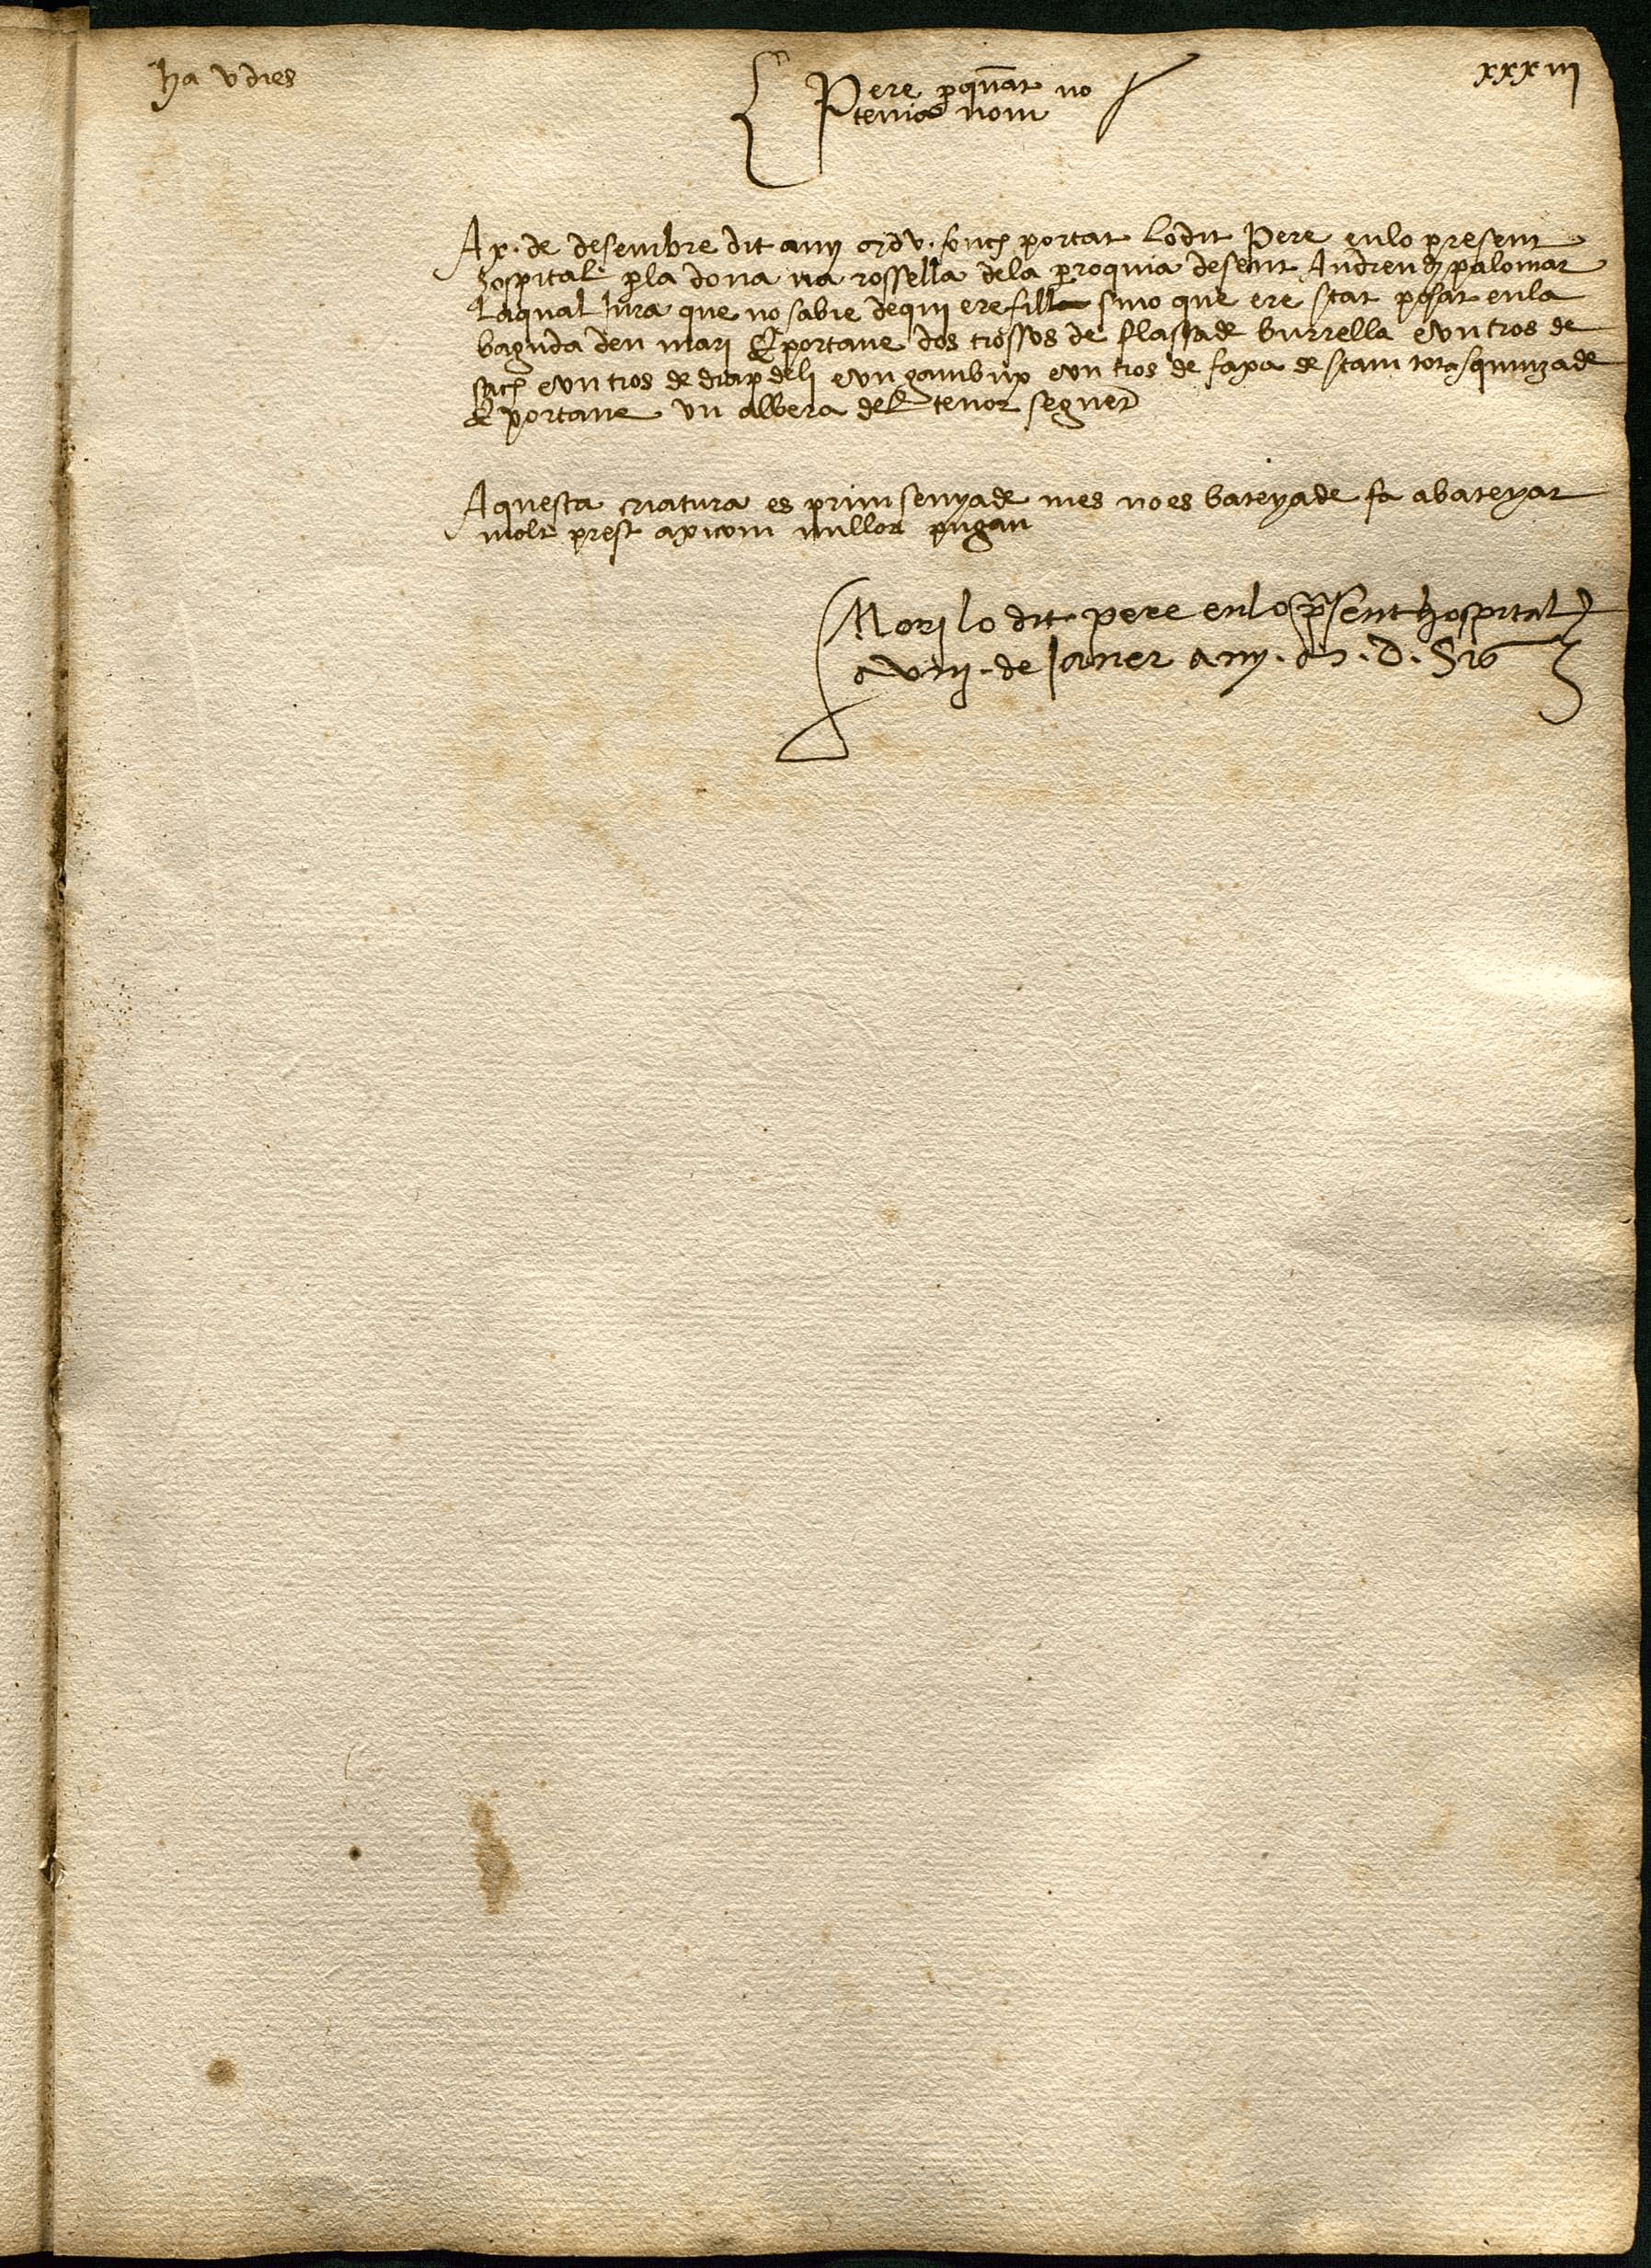 ha v dies
Pere perquant no
tenia nom
xxxiii
A x. de desembre dit any MDV. fonch portat lodit Pere enlo present
hospital perla dona na rossella dela perroquia de sent Andreu de palomar
laqual jura que no sabie dequi ere fill sino que ere stat posat enla
baguda den mari E portave dos trossos de flassade burrella e vn tros de
sach e vn tros de drap de li e vn gambux e vn tros de faxa de stam tota squinzade
E portave vn albera del tenor seguent
Aquesta criatura es primsenyade mes no es bateyade fa a bateyar
molt prest axi com millor pugau
Mori lo dit pere enlo present hospital
a viij. de Janer any. M. D. Sis